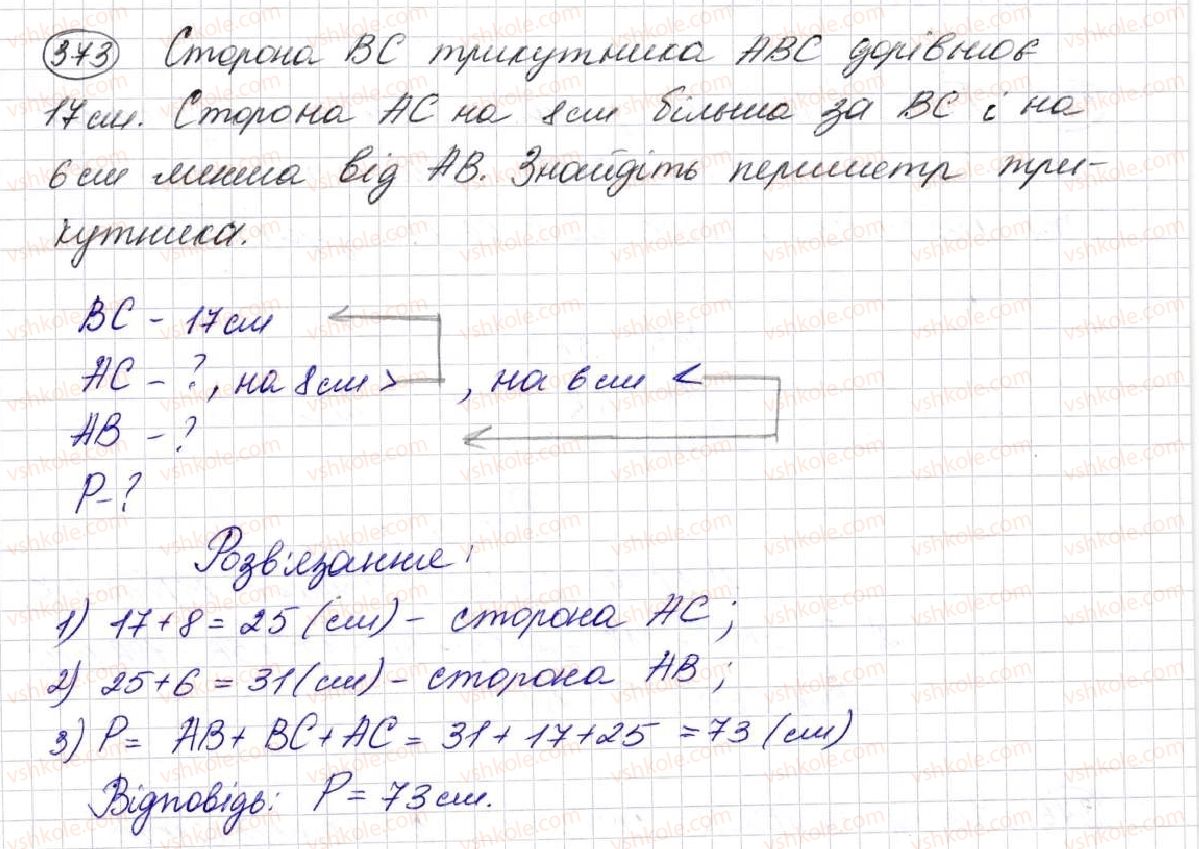 373 Сторона BC трикутника ABC дорівнює
17см. Сторона AC на 8см більша за BC і на
6см менша від AB. Знайдіть периметр три-
кутника.
BC - 17см
AC - ?, на 8см >, на 6см <
AB - ?
P - ?
Розв'язання:
1) 17+8=25 (см) - сторона AC;
2) 25+6=31 (см) - сторона AB;
3) P= AB+BC+AC=31+17+25=73 (см)
Відповідь: P=73см.